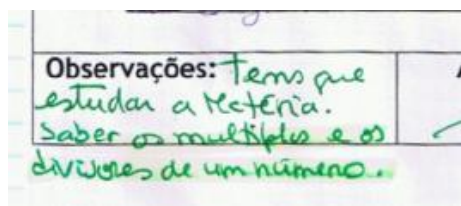 Observações: Tens que
estudar a matéria.
Saber os multiplos e os
divisores de um número.